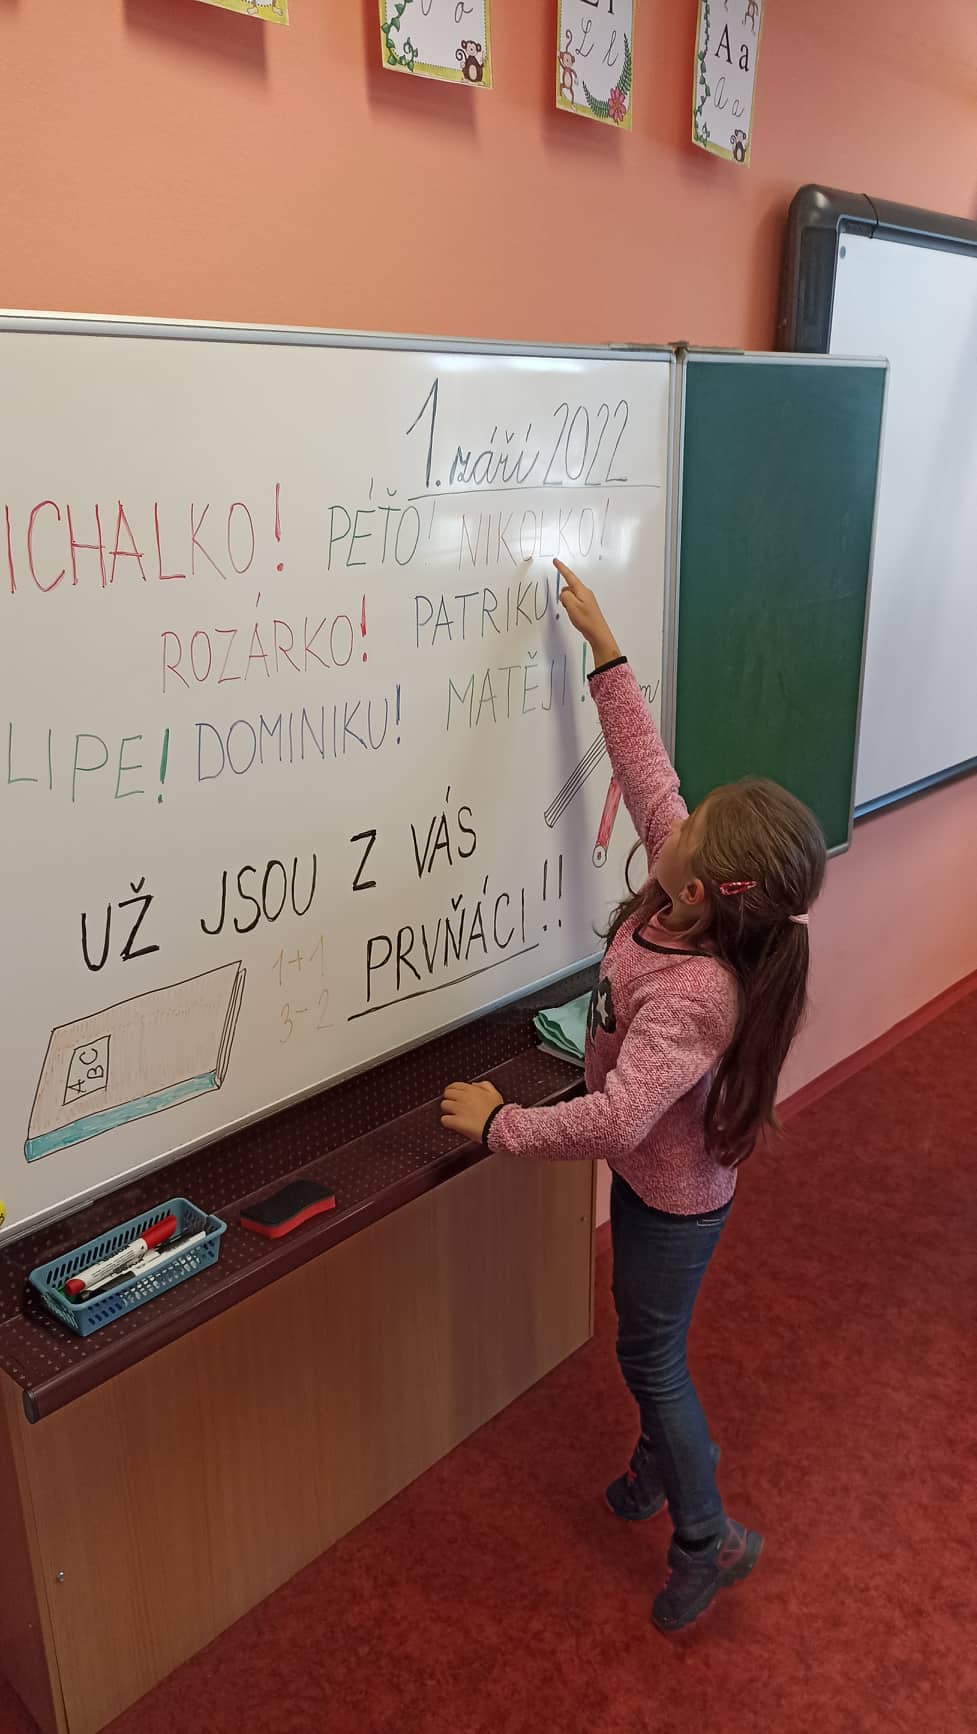 A a
A a
L l
o
1. září 2022
ICHALKO! PÉŤO! NIKOLKO!
ROZÁRKO! PATRIKU!
LIPE! DOMINIKU! MATĚJI!
m
UŽ JSOU Z VÁS
PRVŇÁCI!!
1+1
3-2
ABC